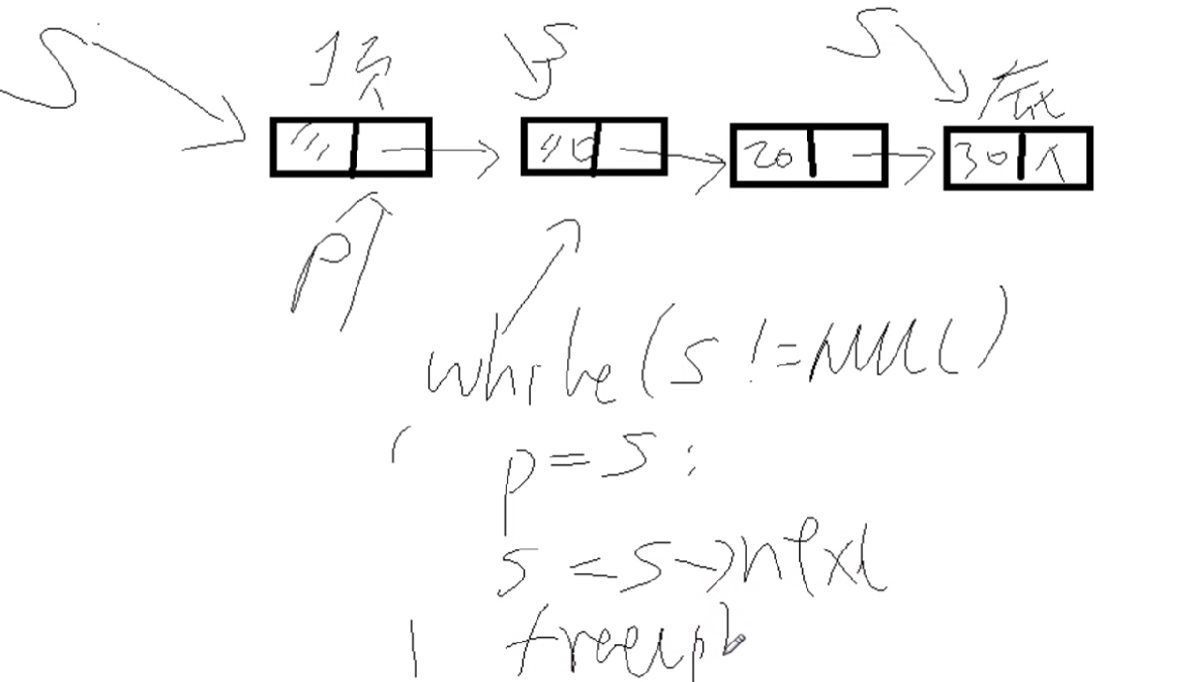 S S S
40 20 30 ∧
p
while(s!=NULL)
p=s;
s=s->next
free(p)